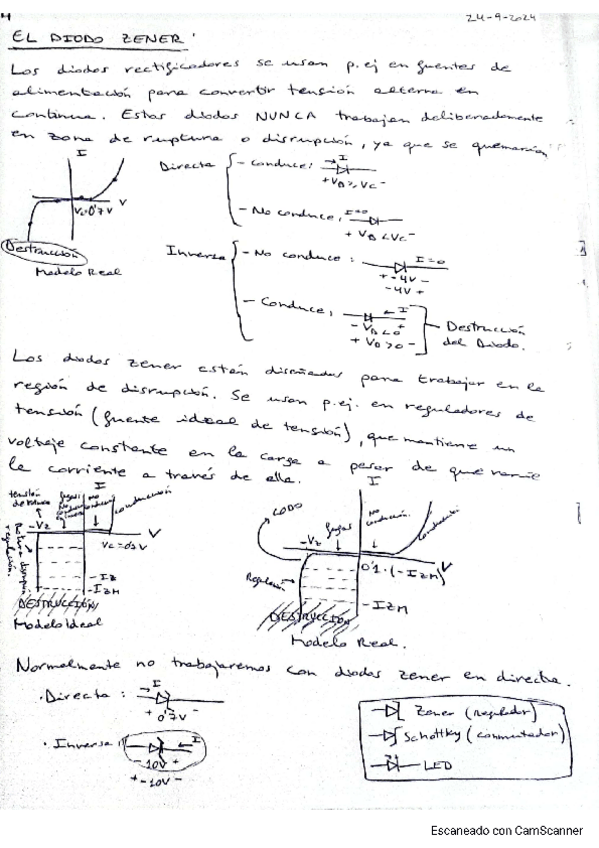 24-9-2024
EL DIODO ZENER
Los diodos rectificadores se usan p.ej en fuentes de
alimentación para convertir tensión alterna en
continua. Estos diodos NUNCA trabajan deliberadamente
en zona de ruptura o disrupción, ya que se quemarían
I
V
Vc=0'7V
Destrucción
Modelo Real
Directa
- Conduce:
I
+ VD ≥ Vc -
- No conduce:
I=0
+ VD < Vc -
Inversa
- No conduce:
I=0
+ -4V -
-4V +
- Conduce:
I
- VD<0 +
+ VD>0 -
Destrucción
del Diodo.
Los diodos zener están diseñados para trabajar en la
región de disrupción. Se usan p.ej. en reguladores de
tensión (fuente ideal de tensión), que mantiene un
voltaje constante en la carga a pesar de que varíe
la corriente a través de ella.
I
tensión
fugas
No
conducción
conducción
-Vz
V
regulación
-Iz
-IzM
DESTRUCCIÓN
Modelo Ideal
I
CODO
-Vz
fugas
No
conducción
conducción
V
0'1·(-IzM)
Regulación
-IzM
DESTRUCCIÓN
Modelo Real.
Normalmente no trabajaremos con diodos zener en directa.
· Directa:
I
+ 0'7V -
· Inversa:
I
- 10V +
+ -10V -
Zener (regulador)
Schottky (conmutador)
LED
Escaneado con CamScanner